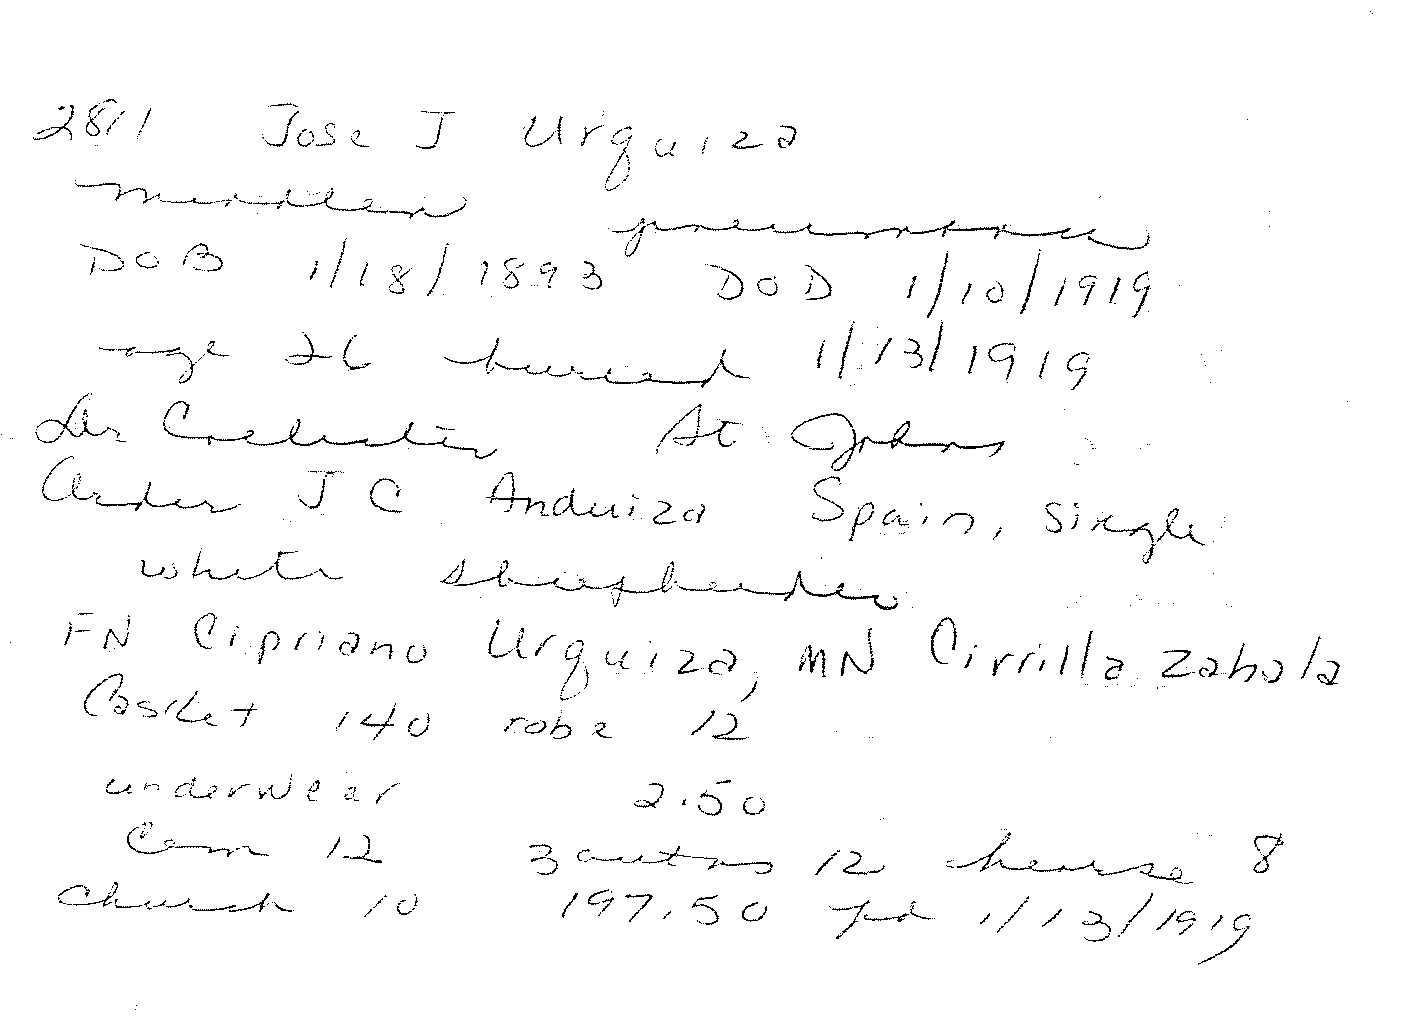 2811 Jose J Urquiza
pneumonia
DOB 1/18/1893 DOD 1/10/1919
age 26 buried 1/13/1919
Dr St Johns
Order J C Anduiza Spain, single
white sheepherder
FN Cipriano Urquiza, MN Cirrilla Zabala
Casket 140 robe 12
underwear 2.50
Cem 12 3 autos 12 hearse 8
church 10 197.50 pd 1/13/1919